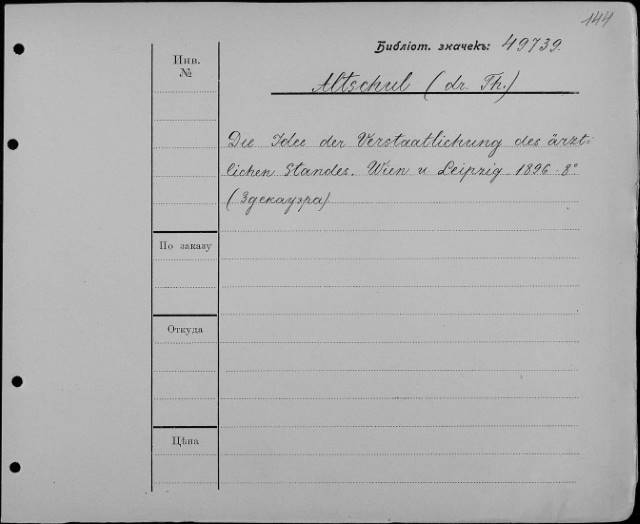 144
Библіот. значекъ: 49739.
Инв.
№
Altschul (dr. Th.)
Die Idee der Verstaatlichung des ärzt-
lichen Standes. Wien u Leipzig 1896. 8°
(Здекауэра)
По заказу
Откуда
Цѣна